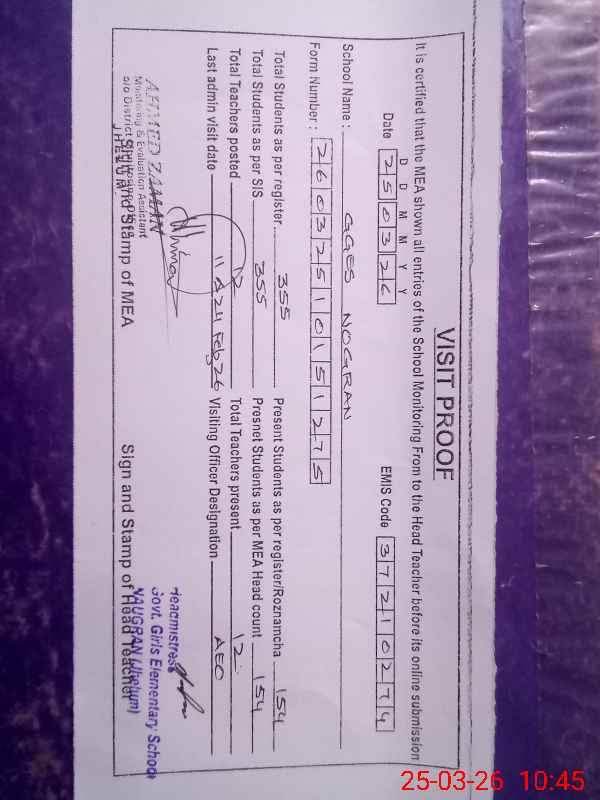 VISIT PROOF
It is certified that the MEA shown all entries of the School Monitoring From to the Head Teacher before its online submission
D D M M Y Y
Date 2 5 0 3 2 6 EMIS Code 3 7 2 1 0 2 7 4
School Name : GGES NOGRAN
Form Number : 2 6 0 3 2 5 1 0 1 5 1 2 7 5
Total Students as per register 355 Present Students as per register/Roznamcha 154
Total Students as per SIS 355 Presnet Students as per MEA Head count 154
Total Teachers posted 12 Total Teachers present 12
Last admin visit date 24 Feb 26 Visiting Officer Designation AEO
AHMED ZAMAN
Monitoring & Evaluation Assistant
o/o District
JHELUM
Sign and Stamp of MEA
Headmistress
Govt. Girls Elementary School
NAUGRAN (Jhelum)
Sign and Stamp of Head Teacher
25-03-26 10:45